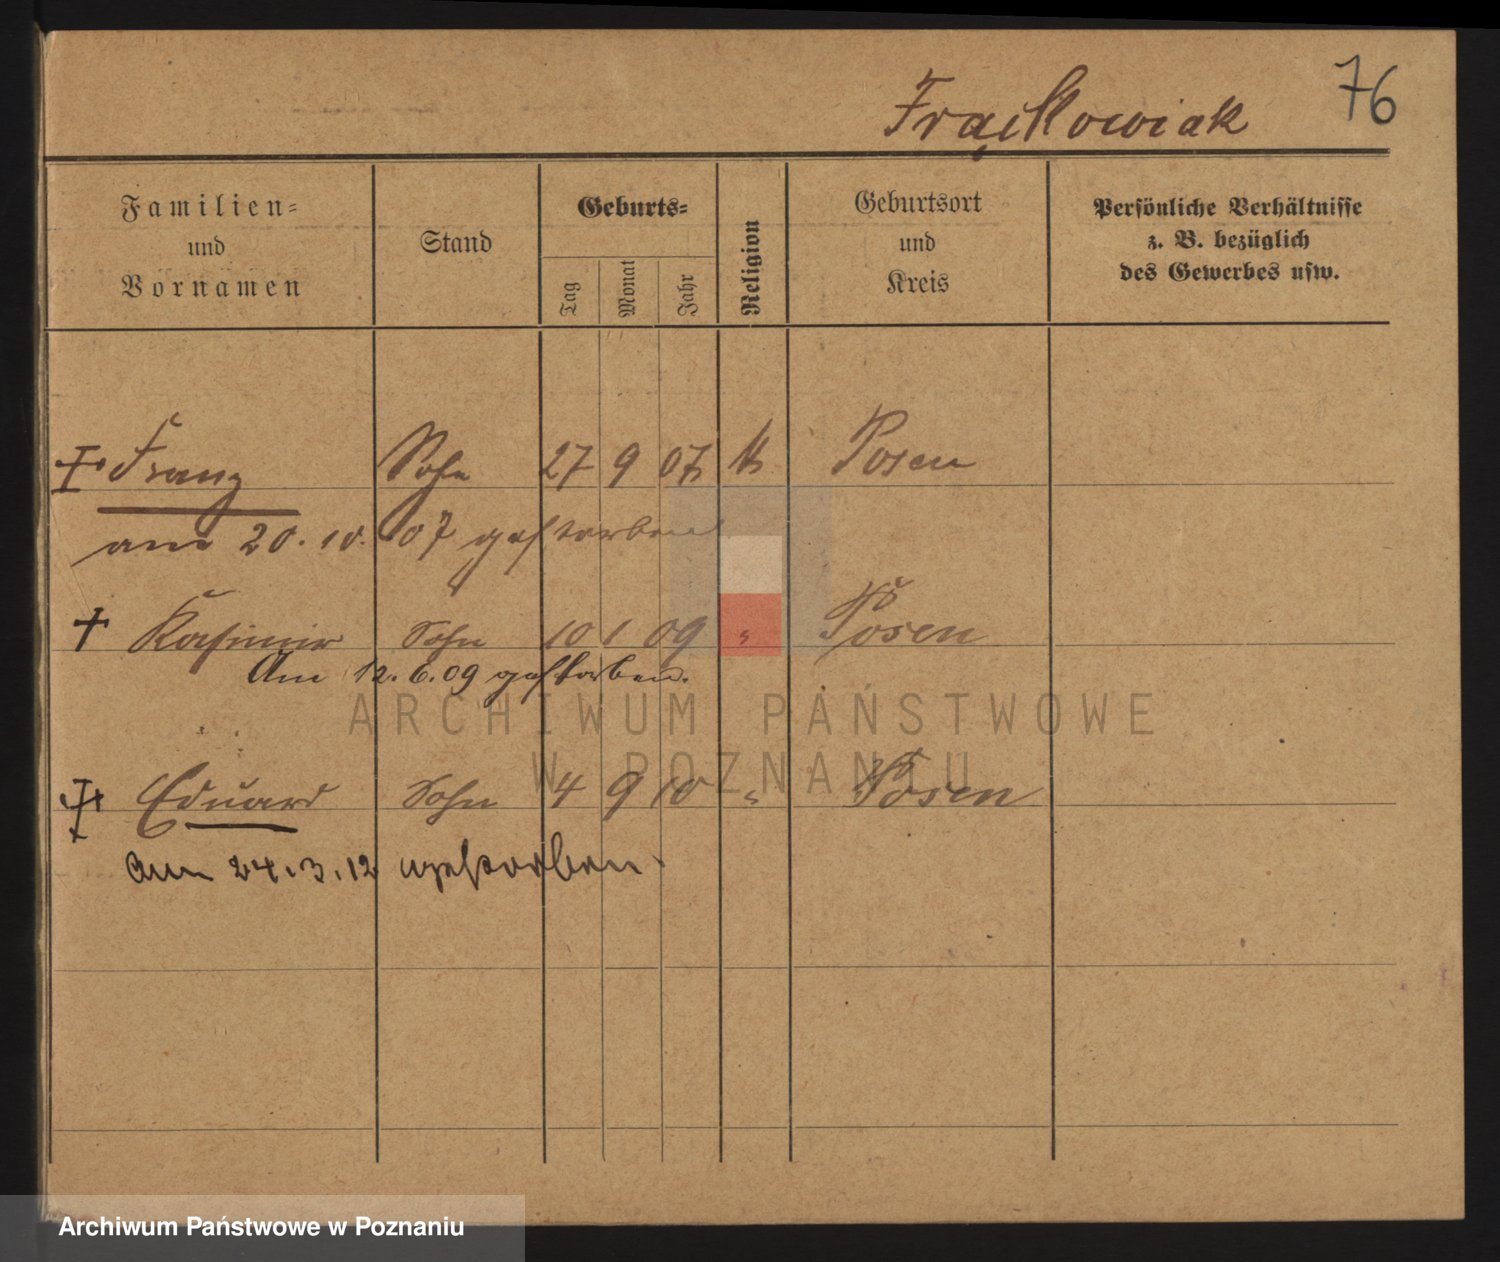 76
Frąckowiak
Familien=
und
Vornamen
Stand
Geburts=
Tag
Monat
Jahr
Religion
Geburtsort
und
Kreis
Persönliche Verhältnisse
z. B. bezüglich
des Gewerbes usw.
Franz Sohn 27 9 07 k Posen
am 20.10.07 gestorben
Kasimir Sohn 10 1 09 " Posen
Am 12.6.09 gestorben.
Eduard Sohn 4 9 10 " Posen
am 24.3.12 gestorben.
ARCHIWUM PAŃSTWOWE
W POZNANIU
Archiwum Państwowe w Poznaniu